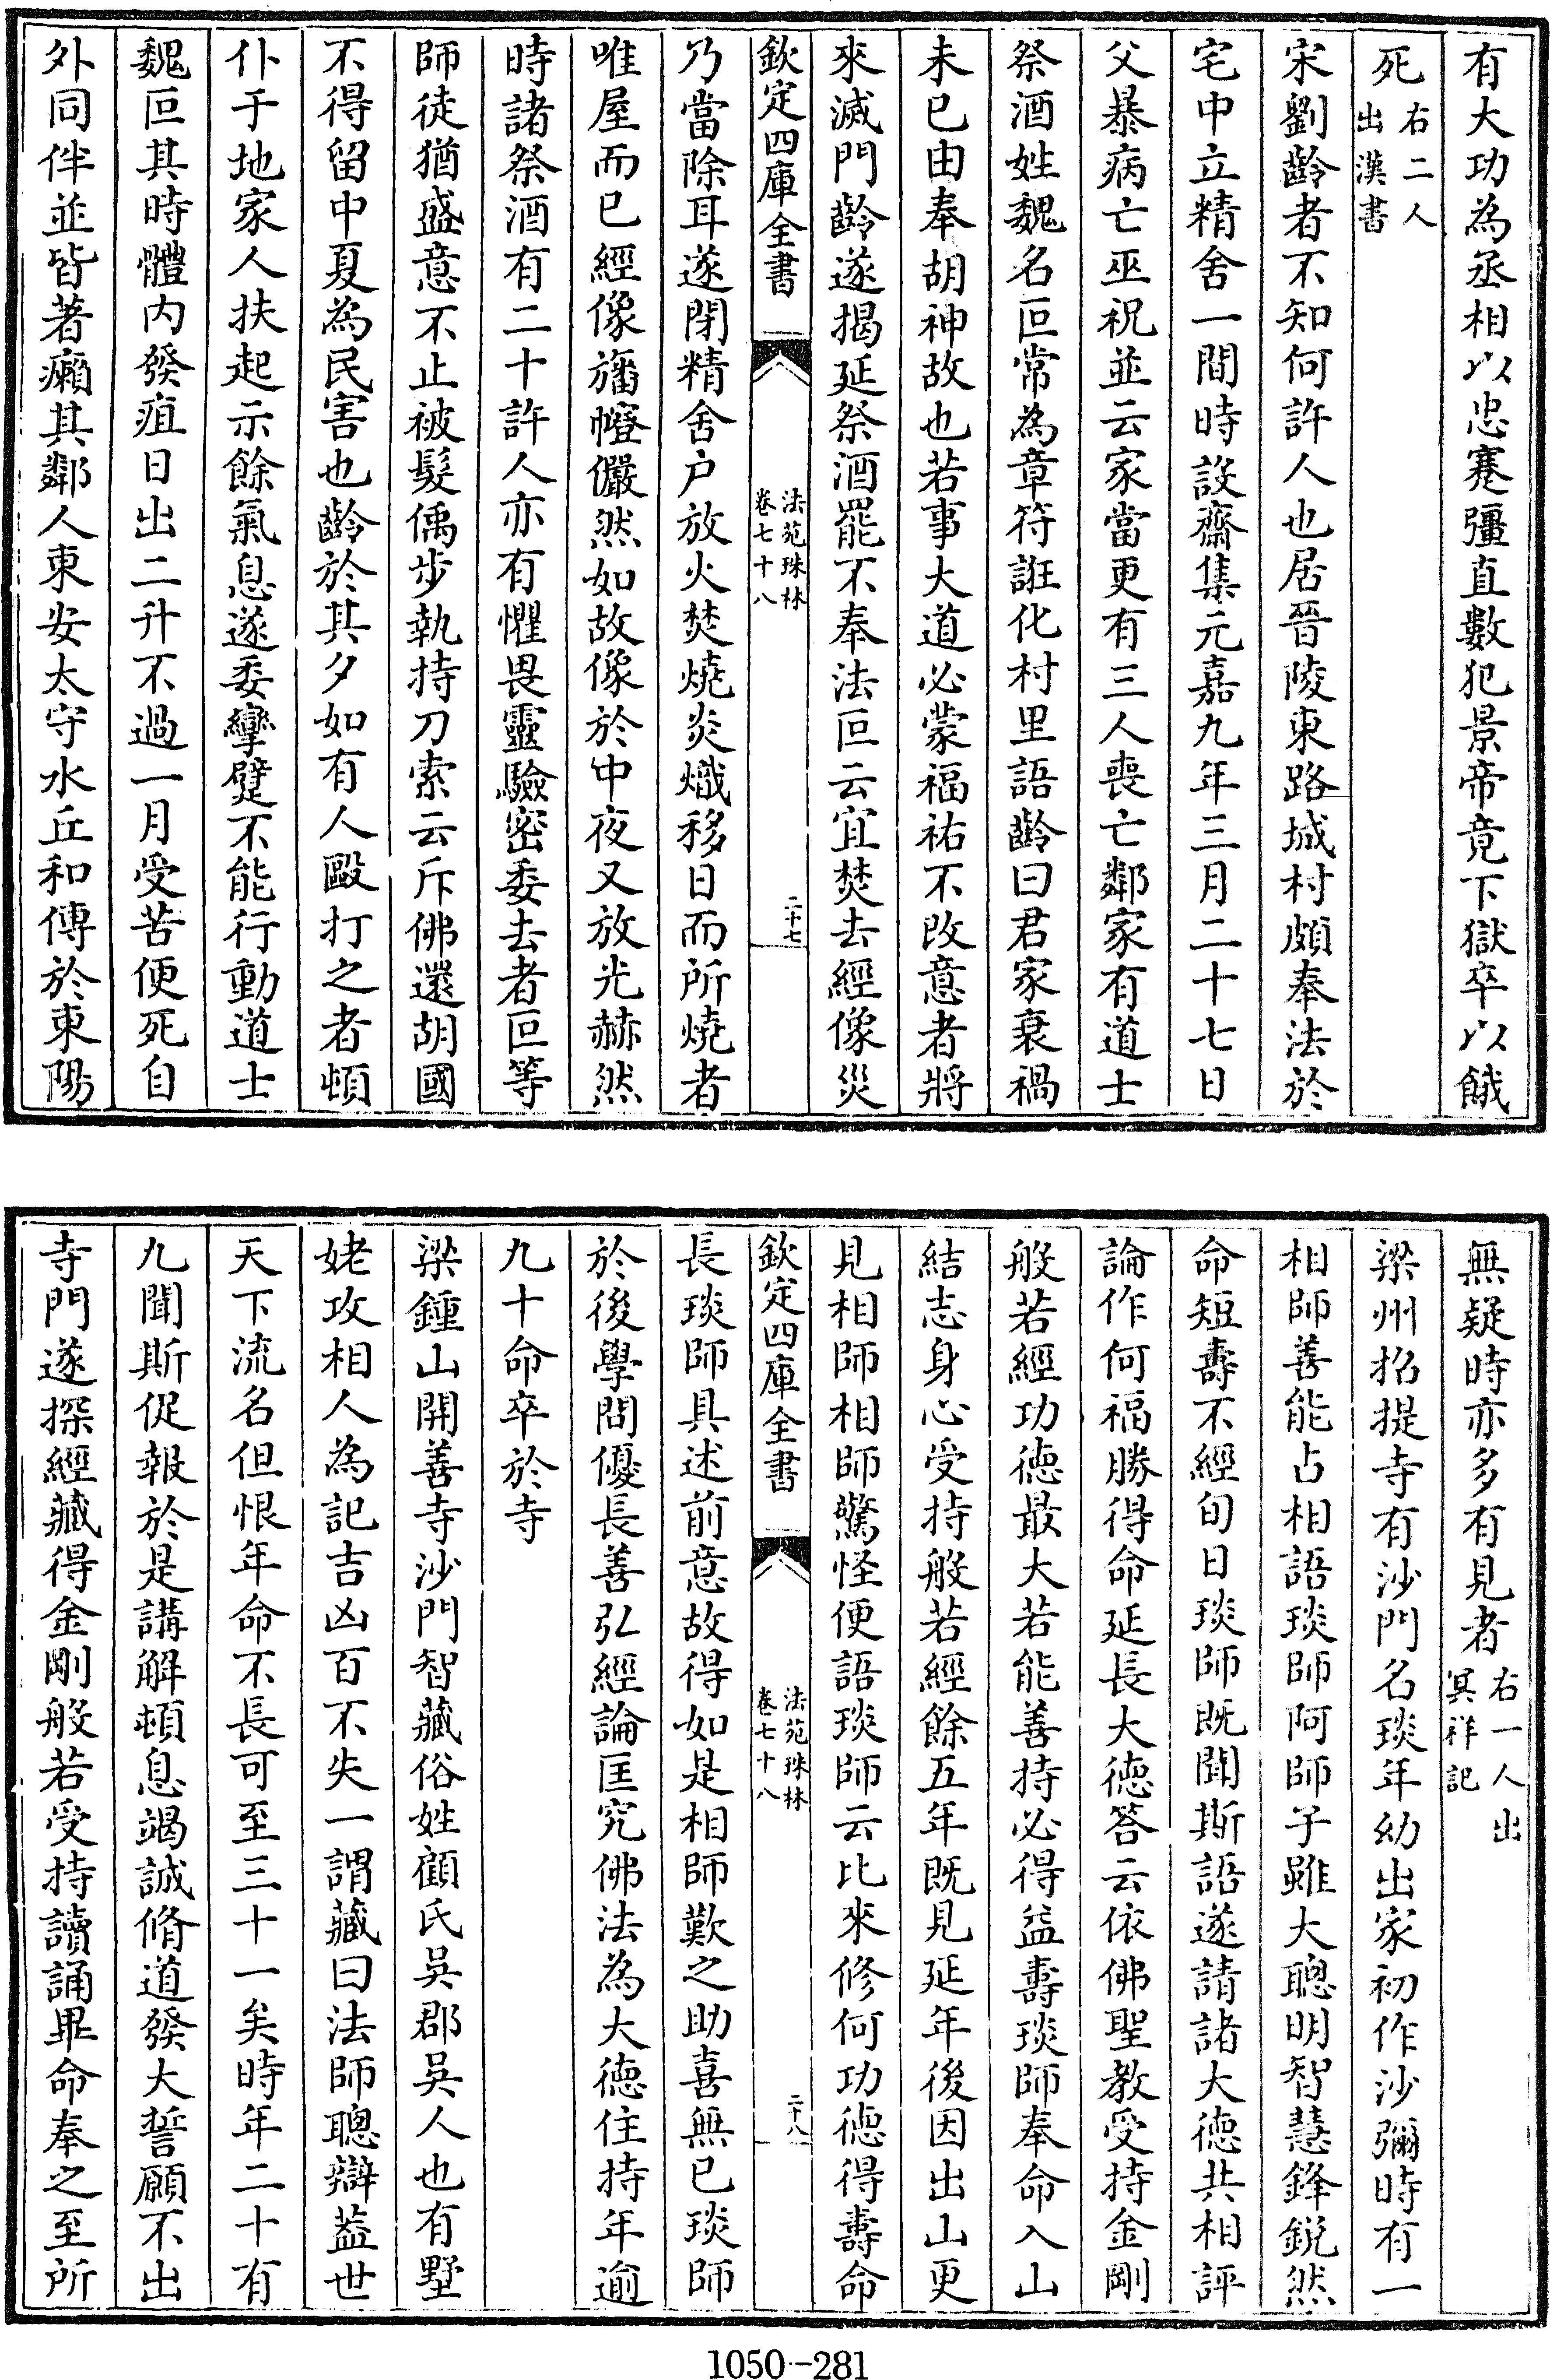 有大功為丞相以忠蹇彊直數犯景帝竟下獄卒以餓
死右二人出漢書
宋劉齡者不知何許人也居晉陵東路城村頗奉法於
宅中立精舍一間時設齋集元嘉九年三月二十七日
父暴病亡巫祝並云家當更有三人喪亡鄰家有道士
祭酒姓魏名叵常為章符誑化村里語齡曰君家衰禍
未已由奉胡神故也若事大道必蒙福祐不改意者將
來滅門齡遂揭延祭酒罷不奉法叵云宜焚去經像災
欽定四庫全書 法苑珠林卷七十八 二十七
乃當除耳遂閉精舍户放火焚燒炎熾移日而所燒者
唯屋而已經像旛幰儼然如故像於中夜又放光赫然
時諸祭酒有二十許人亦有懼畏靈驗密委去者叵等
師徒猶盛意不止被髮偊步執持刀索云斥佛還胡國
不得留中夏為民害也齡於其夕如有人毆打之者頓
仆于地家人扶起示餘氣息遂委攣躄不能行動道士
魏叵其時體内發疽日出二升不過一月受苦便死自
外同伴並皆著癩其鄰人東安太守水丘和傳於東陽
無疑時亦多有見者右一人出冥祥記
梁州招提寺有沙門名琰年幼出家初作沙彌時有一
相師善能占相語琰師阿師子雖大聰明智慧鋒銳然
命短壽不經旬日琰師既聞斯語遂請諸大德共相評
論作何福勝得命延長大德答云依佛聖教受持金剛
般若經功德最大若能善持必得益壽琰師奉命入山
結志身心受持般若經餘五年既見延年後因出山更
見相師相師驚怪便語琰師云比來修何功德得壽命
欽定四庫全書 法苑珠林卷七十八 二十八
長琰師具述前意故得如是相師歎之助喜無已琰師
於後學問優長善弘經論匡究佛法為大德住持年逾
九十命卒於寺
梁鍾山開善寺沙門智藏俗姓顧氏吳郡吳人也有墅
姥攻相人為記吉凶百不失一謂藏曰法師聰辯葢世
天下流名但恨年命不長可至三十一矣時年二十有
九聞斯促報於是講解頓息竭誠脩道發大誓願不出
寺門遂探經藏得金剛般若受持讀誦畢命奉之至所
1050-281